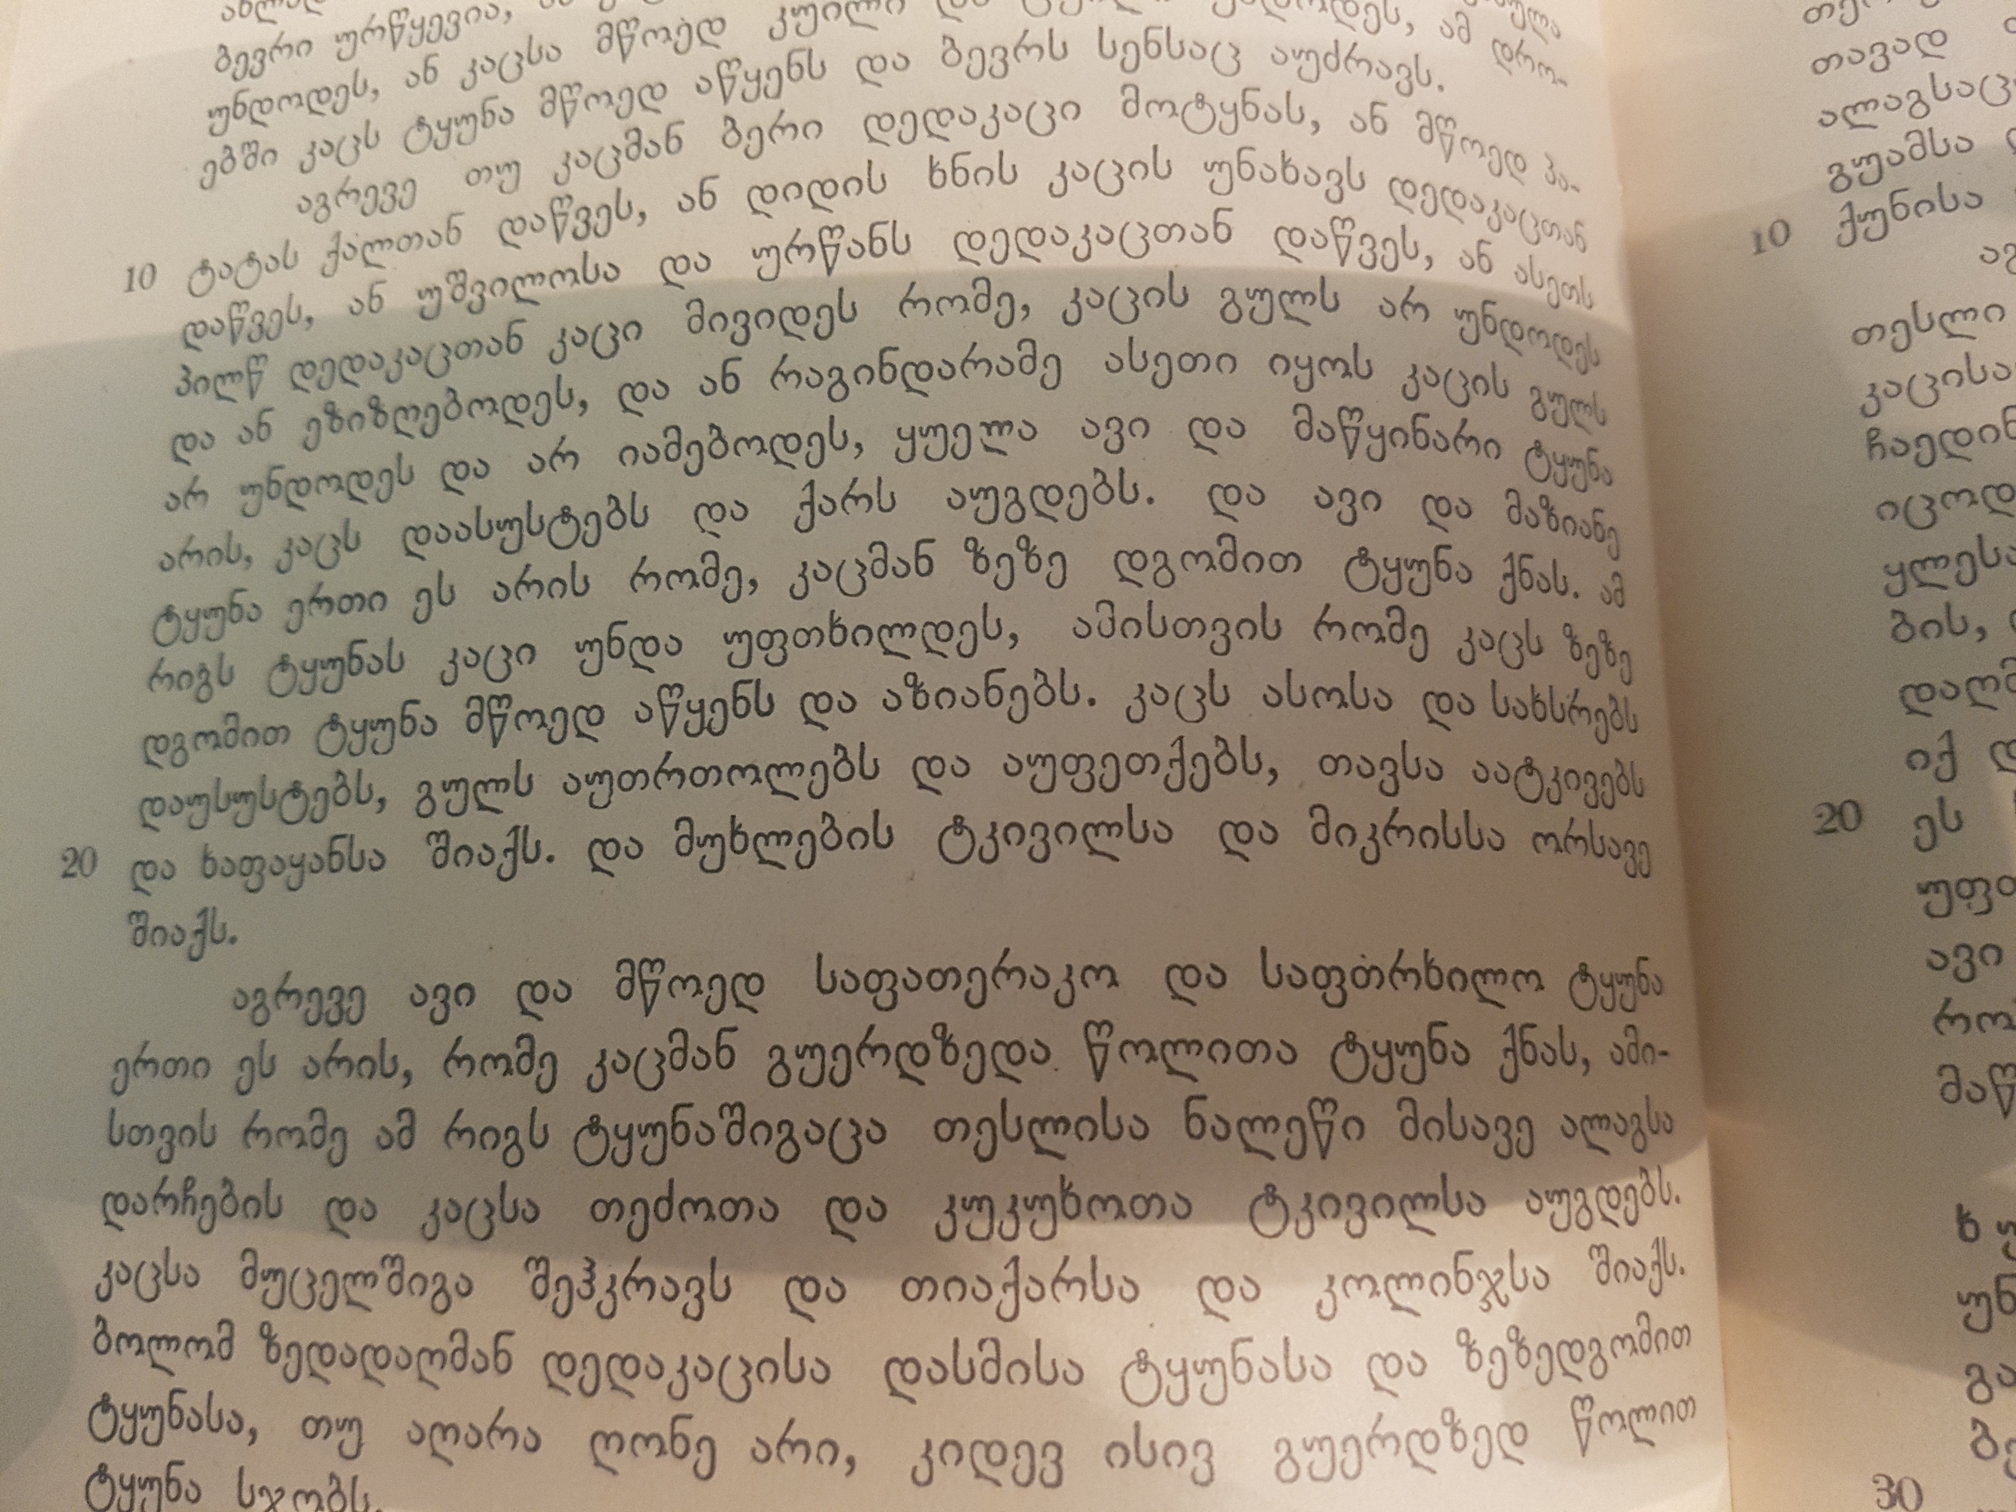 ბევრი ურწყევია,
უნდოდეს, ან კაცსა მწოედ კუილი და უნდოდეს, ამ დრო-
ებში კაცს ტყუნა მწოედ აწყენს და ბევრს სენსაც აუძრავს.
აგრევე თუ კაცმან ბერი დედაკაცი მოტყნას, ან მწოედ პა-
10 ტატას ქალთან დაწვეს, ან დიდის ხნის კაცის უნახავს დედაკაცთან
დაწვეს, ან უშვილოსა და ურწანს დედაკაცთან დაწვეს, ან ასეთს
პილწ დედაკაცთან კაცი მივიდეს რომე, კაცის გულს არ უნდოდეს
და ან ეზიზღებოდეს, და ან რაგინდარამე ასეთი იყოს კაცის გულს
არ უნდოდეს და არ იამებოდეს, ყუელა ავი და მაწყინარი ტყუნა
არის, კაცს დაასუსტებს და ქარს აუგდებს. და ავი და მაზიანე
ტყუნა ერთი ეს არის რომე, კაცმან ზეზე დგომით ტყუნა ქნას. ამ
რიგს ტყუნას კაცი უნდა უფთხილდეს, ამისთვის რომე კაცს ზეზე
დგომით ტყუნა მწოედ აწყენს და აზიანებს. კაცს ასოსა და სახსრებს
დაუსუსტებს, გულს აუთრთოლებს და აუფეთქებს, თავსა აატკივებს
20 და ხაფაყანსა შიაქს. და მუხლების ტკივილსა და მიკრისსა ორსავე
შიაქს.
აგრევე ავი და მწოედ საფათერაკო და საფთრხილო ტყუნა
ერთი ეს არის, რომე კაცმან გუერდზედა წოლითა ტყუნა ქნას, ამი-
სთვის რომე ამ რიგს ტყუნაშიგაცა თესლისა ნალეწი მისავე ალაგსა
დარჩების და კაცსა თეძოთა და კუკუხოთა ტკივილსა აუგდებს.
კაცსა მუცელშიგა შეჰკრავს და თიაქარსა და კოლინჯსა შიაქს.
ბოლომ ზედადაღმან დედაკაცისა დასმისა ტყუნასა და ზეზედგომით
ტყუნასა, თუ აღარა ღონე არი, კიდევ ისივ გუერდზედ წოლით
ტყუნა სჯობს.
თავად
ალაგსაც
გუამსა
10 ქუნისა
თესლი
კაცისა
ჩაედინ
იცოდ
ყლესა
ბის,
დაღმ
იქ
20 ეს
უფთ
ავი
რო
მაწ
უნ
გა
30